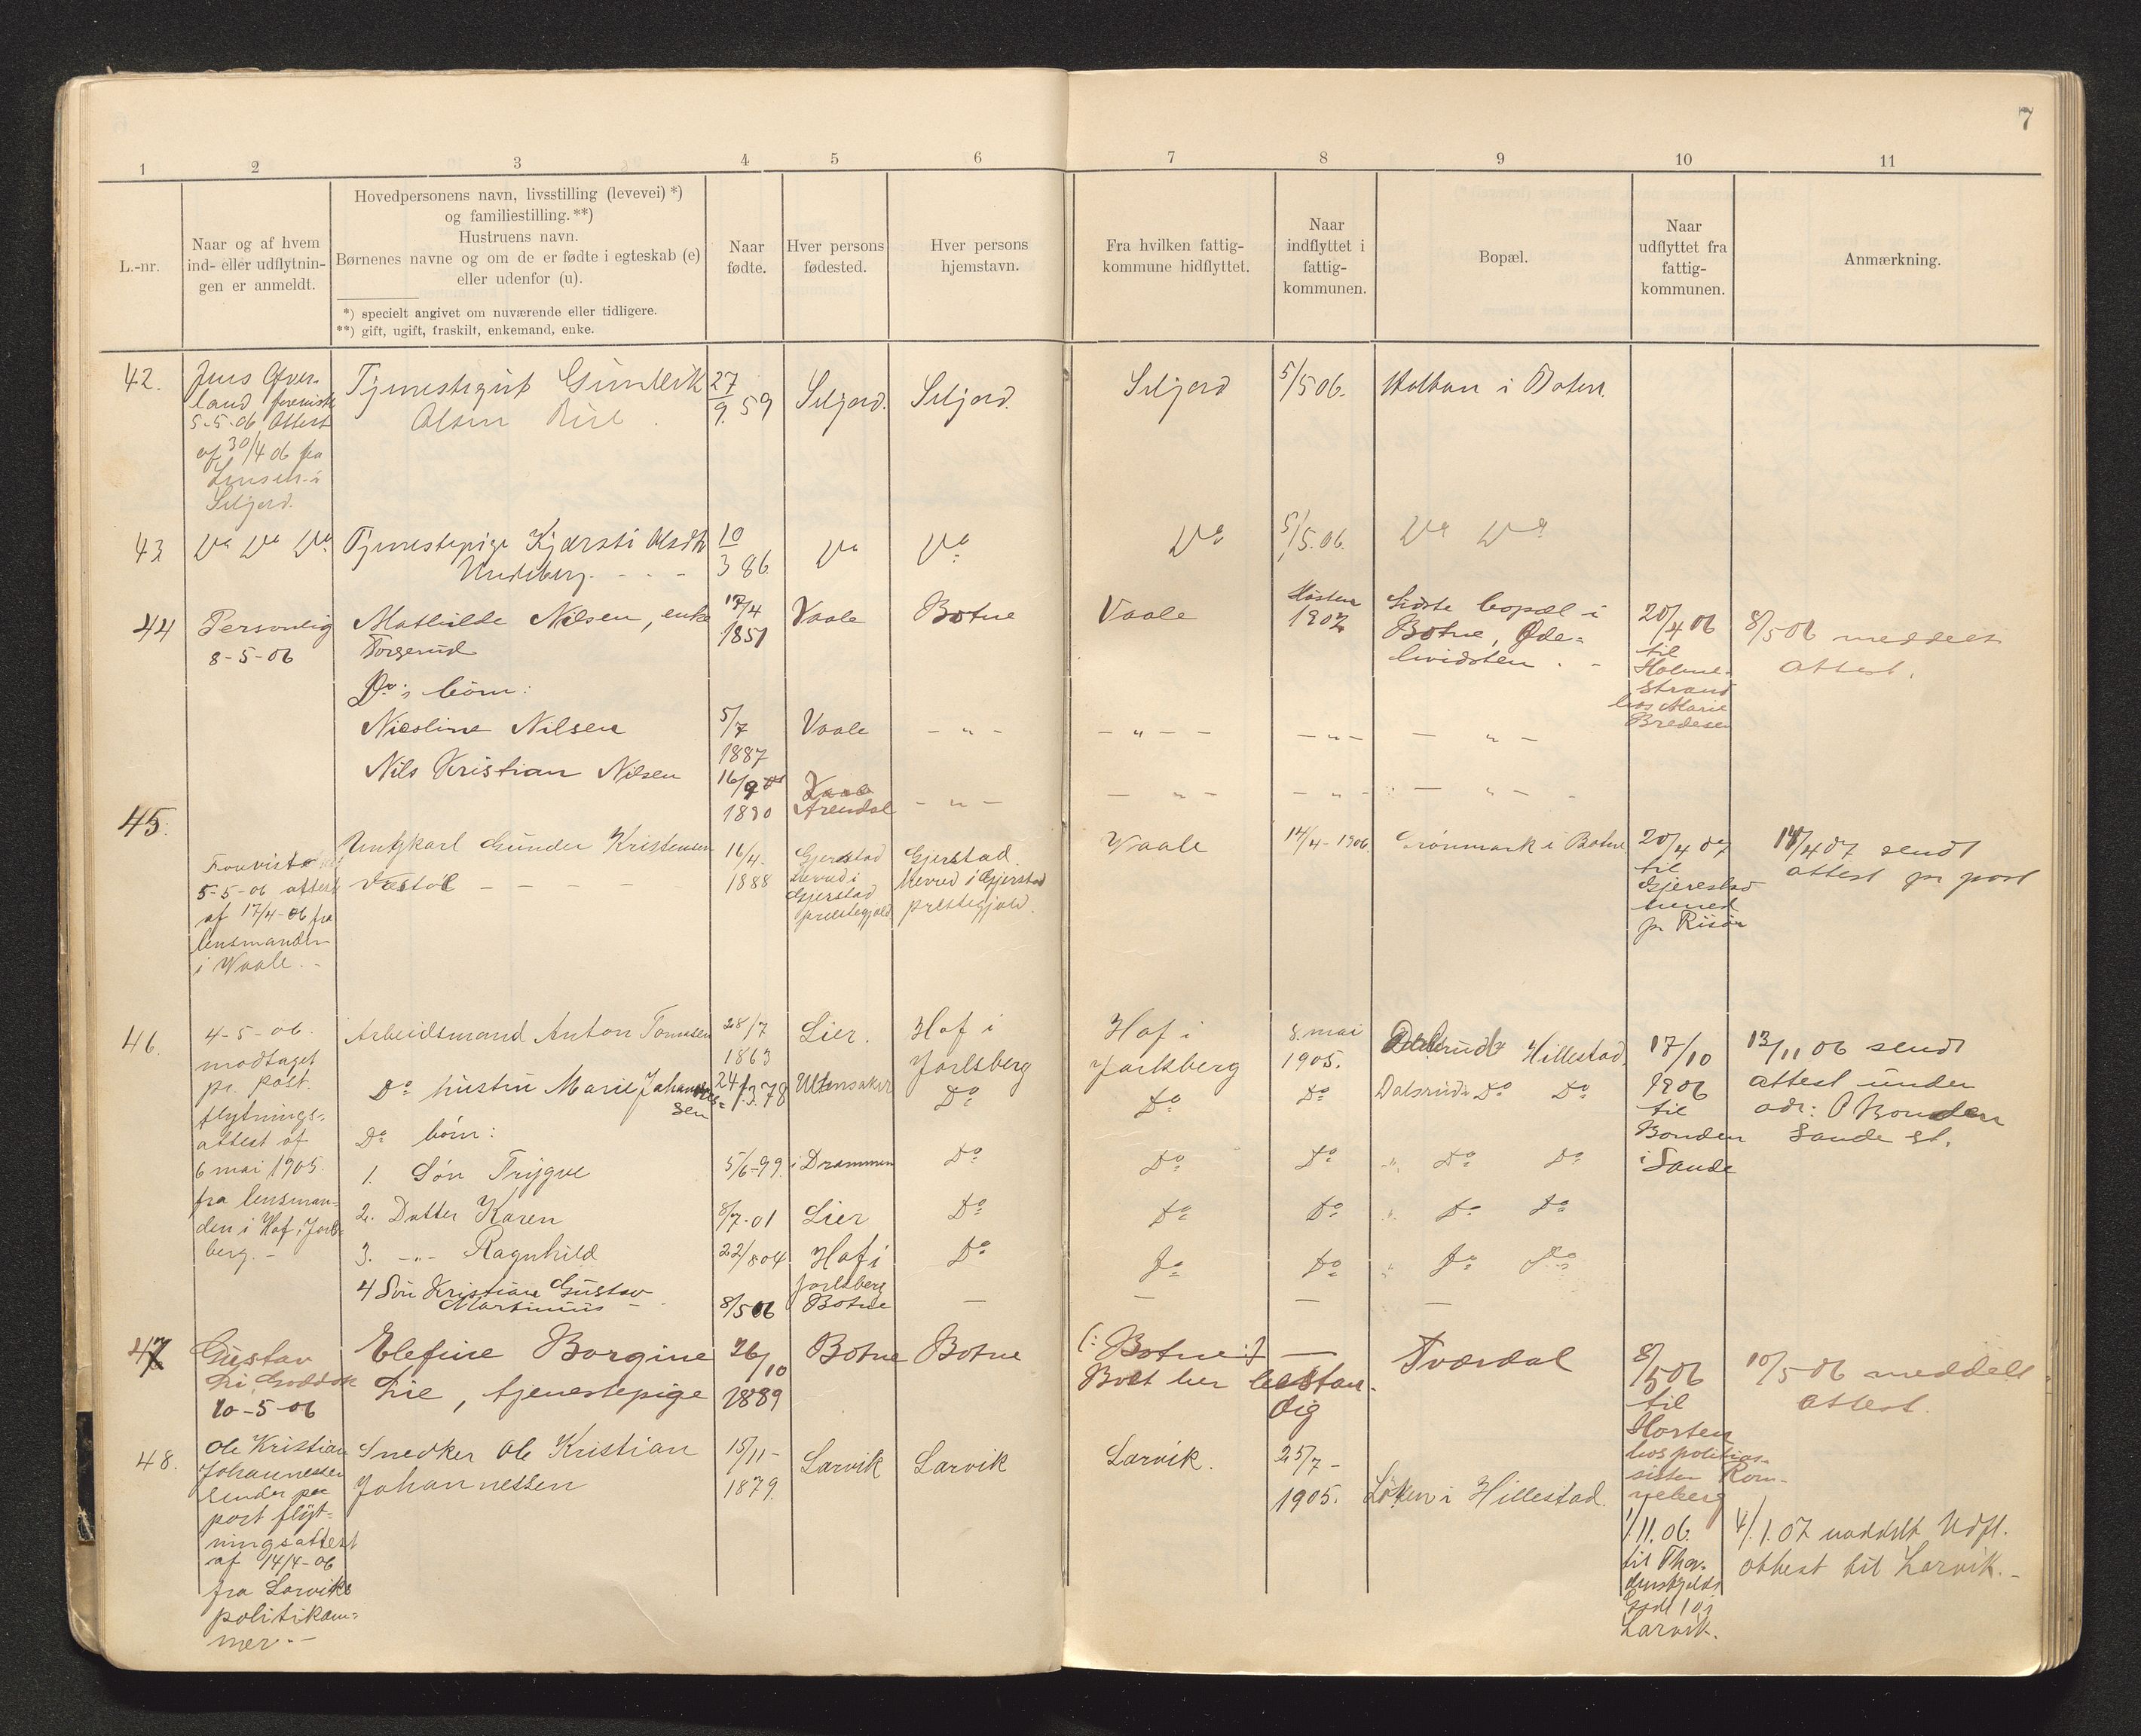 7
1 2 3 4 5 6 7 8 9 10 11
L.-nr.
Naar og af hvem
ind- eller udflytnin-
gen er anmeldt.
Hovedpersonens navn, livsstilling (levevei) *)
og familiestilling. **)
Hustruens navn.
Børnenes navne og om de er fødte i egteskab (e)
eller udenfor (u).
*) specielt angivet om nuværende eller tidligere.
**) gift, ugift, fraskilt, enkemand, enke.
Naar
fødte.
Hver persons
fødested.
Hver persons
hjemstavn.
Fra hvilken fattig-
kommune hidflyttet.
Naar
indflyttet i
fattig-
kommunen.
Bopæl.
Naar
udflyttet fra
fattig-
kommunen.
Anmærkning.
42.
Jens Øver-
land forevist
5-5-06 Attest
af 30/4 06 fra
Lensm. i
Siljord.
Tjenestegut Gunleik
Olsen
27
9. 59
Siljord.
Siljord.
Siljord
5/5 06.
i Botne.
43
Do Do Do
Tjenestepige Kjersti Olsdtr
10
3 86
Do
Do
Do
5/5.06.
Do Do
44
Personlig
8-5-06
Mathilde Nilsen, enke
Torgerud
17/4
1851
Vaale
Botne
Vaale
Høsten
1902
Sidste bopæl i
Botne, Øde-
kvidsten. -
20/4 06
til
Holme-
strand
hos Marie
Bredesen
8/5 06 meddelt
attest.
Do's børn:
Nicoline Nilsen
5/7
1887
Vaale
- " -
- " - -
- " -
- " -
Nils Kristian Nilsen
16/9
1890
Vaale
Arendal
- " -
- " -
- " -
- " -
45.
Forevist
5-5-06 attest
af 17/4-06 fra
lensmanden
i Vaale. -
Ungkarl Gunder Kristensen
Væstøl - - - -
16/4-
1888
Gjerstad
herred i
Gjerstad
prestegjeld
Gjerstad.
herred i Gjerstad
prestegjeld.
Vaale
14/4-1906.
Grønmark i Botne
20/4 07
til
Gjerestad
herred
pr Risør
18/4 07 sendt
attest pr post
46.
4-5-06.
modtaget
pr. post.
flytnings-
attest af
6 mai 1905.
fra lensman-
den i Hof i Jarls-
berg. -
Arbeidsmand Anton Tomesen
28/7
1863
Lier.
Hof i
Jarlsberg
Hof i
Jarlsberg
8. mai
1905.
Dalsrud Hillestad.
17/10
1906
til
Bonden
i Sande
13/11 06 sendt
attest under
adr: P Bonden
Sande st.
Do hustru Marie Johannes-
sen
24/3.78
Ullensaker
Do
Do
Do
Dalsrud Do Do
Do børn:
1. Søn Trygve
5/6-99.
i Drammen
Do
Do
Do
" Do Do
2. Datter Karen
8/7-01
Lier
Do
Do
Do
" Do Do
3. -"- Ragnhild
22/8 04
Hof i
Jarlsberg
Do
Do
Do
" Do Do
4 Søn Kristian Gustav
Martinius -
8/5 06
Botne
-
-
-
-
47
Gustav
Lie,
10-5-06
Elefine Borgine
Lie, tjenestepige
26/10
1889
Botne
Botne
(: Botne :)
Boet her bestan-
dig
-
Tværdal
8/5 06
til
Horten
hos politias-
sisten Rom-
neberg
10/5 06 meddelt
attest.
48.
Ole Kristian
Johannessen
sender per
post flyt-
ningsattest
af 14/4-06
fra Larviks
politikam-
mer. -
Snedker Ole Kristian
Johannessen
15/11-
1879.
Larvik
Larvik
Larvik.
25/7-
1905.
Løken i Hillestad.
1/11.06.
til Thor-
denskjolds
Gade 10
Larvik.
4/1.07 meddelt Udfl.
attest til Larvik. -